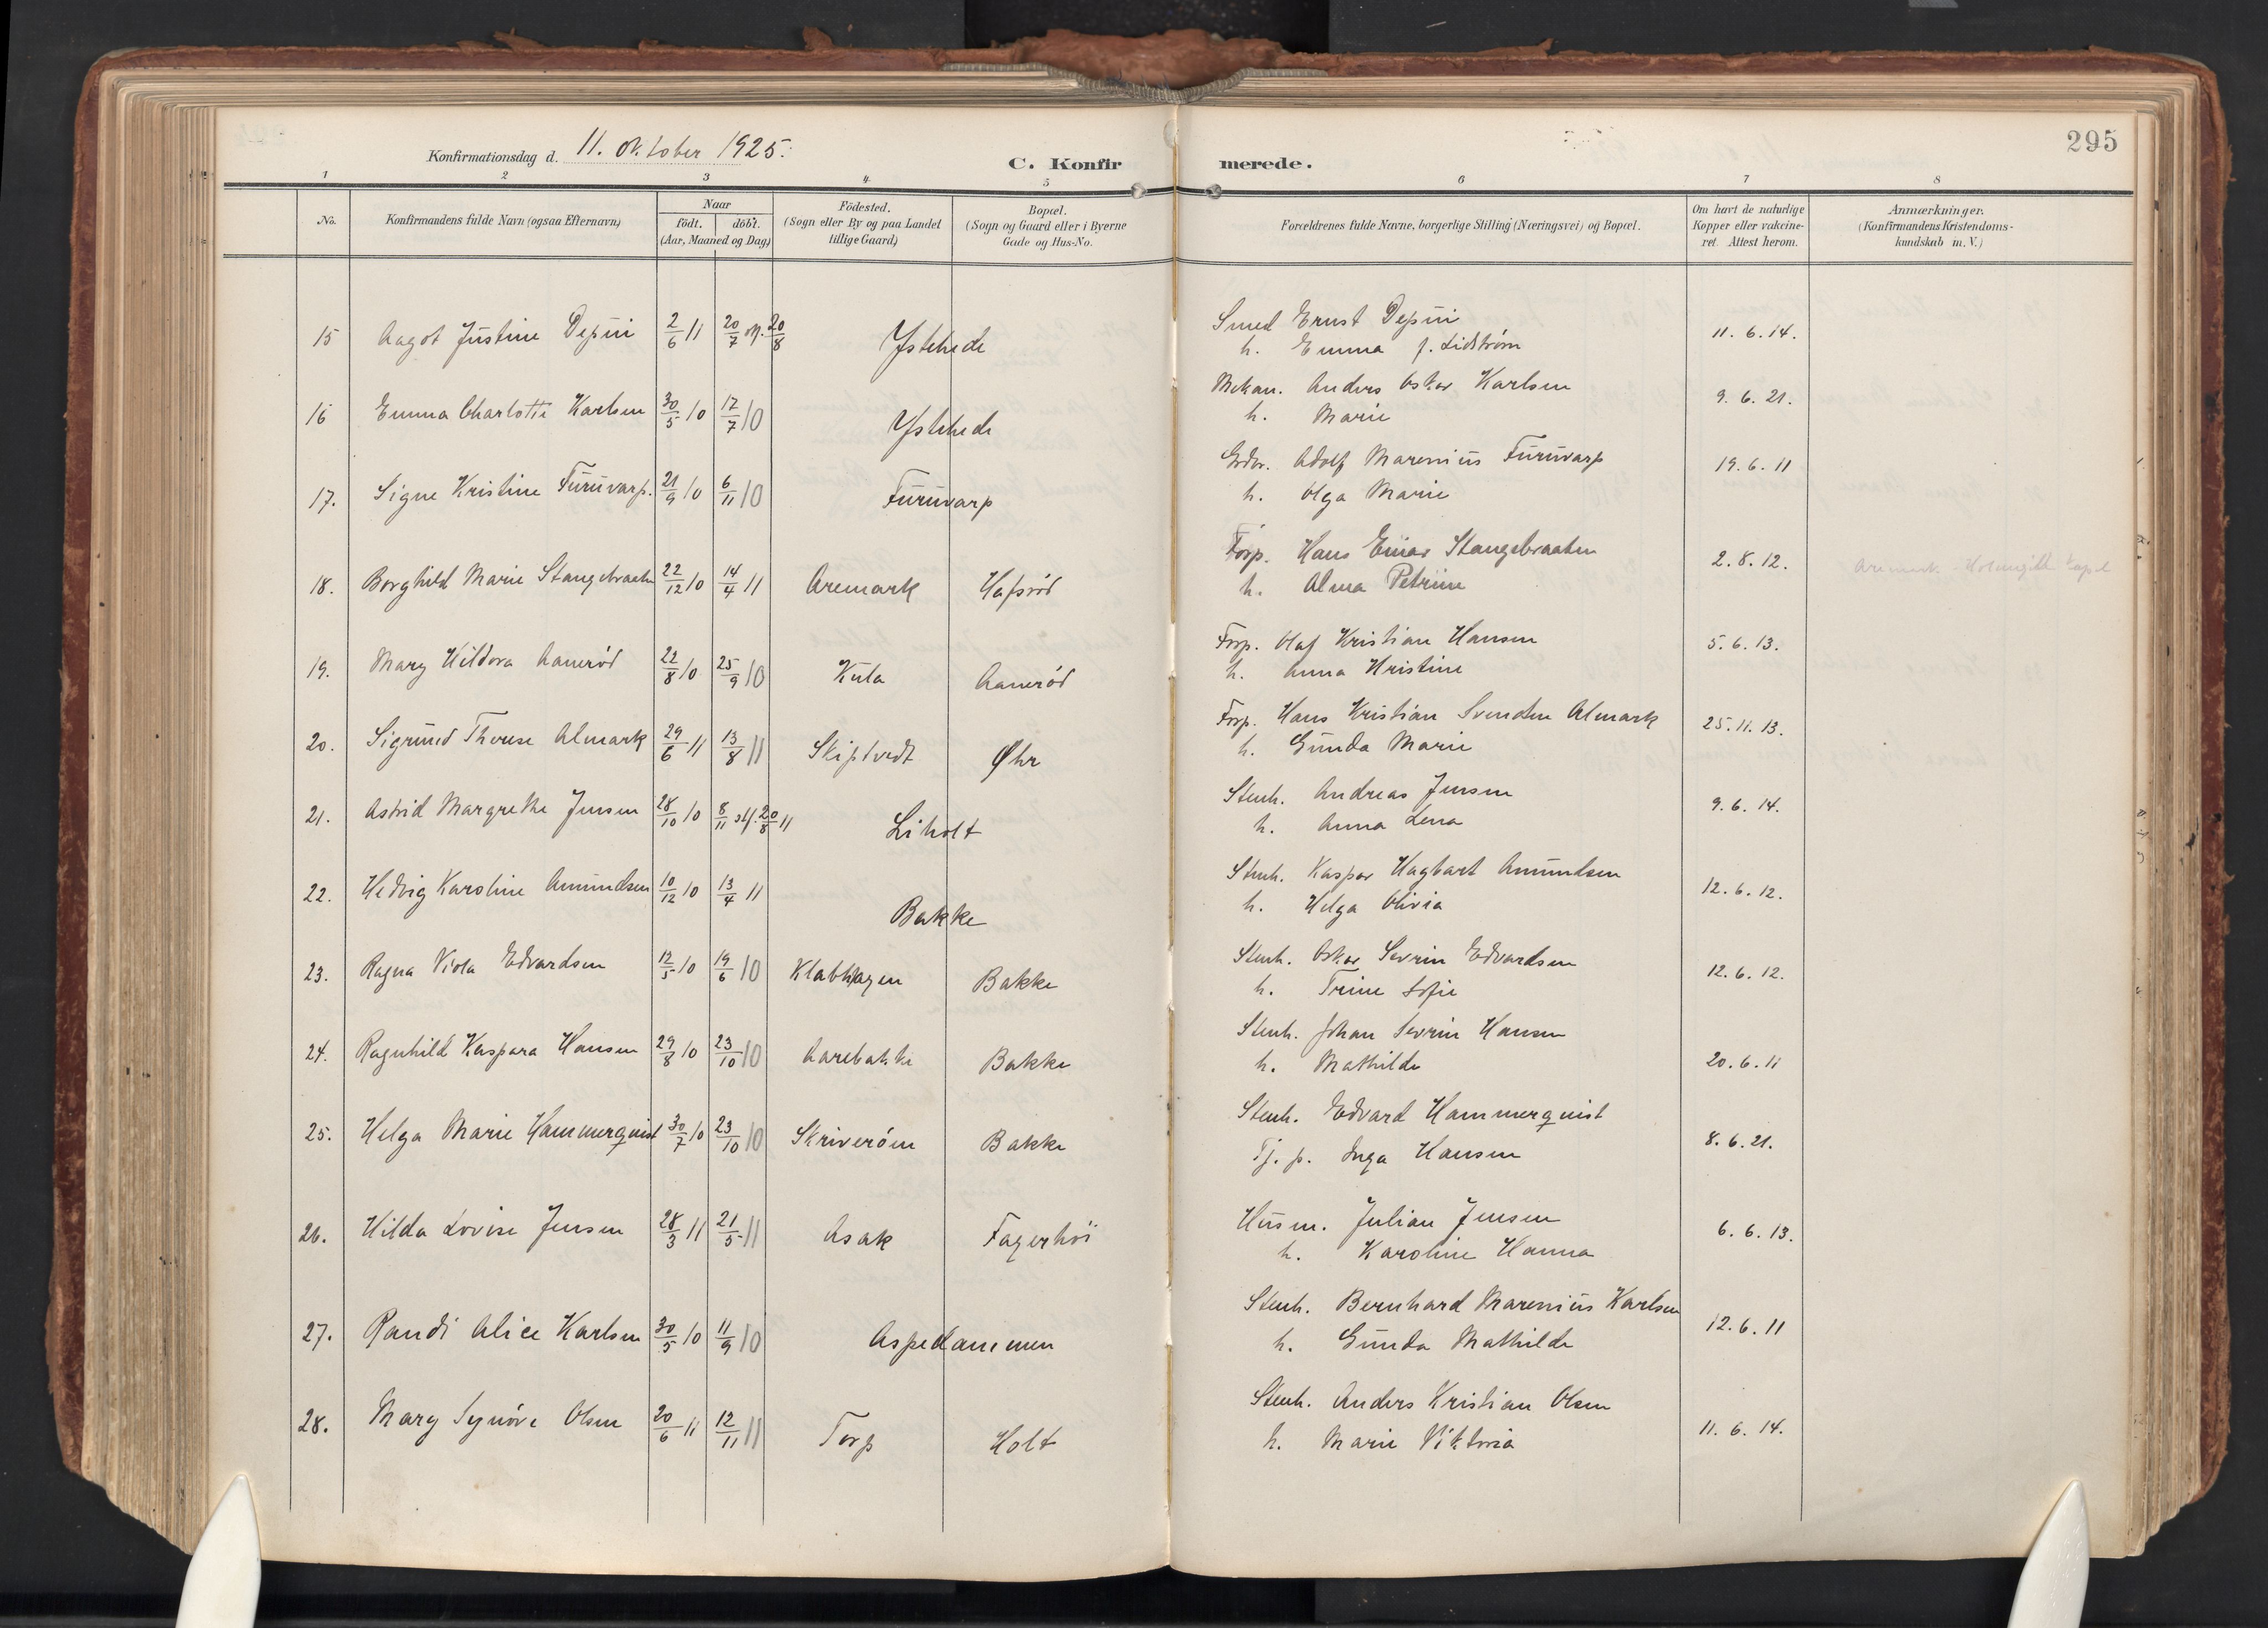 295
Konfirmationsdag d. 11. oktober 1925.
C. Konfirmerede.
1 2 3 4 5 6 7 8
No. Konfirmandens fulde Navn (ogsaa Efternavn) Naar födt. döbt. (Aar, Maaned og Dag) Födested. (Sogn eller By og paa Landet tillige Gaard) Bopæl. (Sogn og Gaard eller i Byerne Gade og Hus-No. Forældrenes fulde Navne, borgerlige Stilling (Næringsvei) og Bopæl. Om havt de naturlige Kopper eller vakcineret. Attest herom. Anmærkninger. (Konfirmandens Kristendomskundskab m. V.)
15 Aagot Justine Depui 2/6 11 20/7 20/8 Ystehede Smed Ernst Depui 11. 6. 14.
h. Emma f. Lidstrøm
16 Emma Charlotte Karlsen 30/5 10 17/7 10 Ystehede Mekan. Anders Oskar Karlsen 9. 6. 21.
h. Marie
17. Signe Kristine Furuvarp. 21/9 10 6/11 10 Furuvarp Gdbr. Adolf Marenius Furuvarp 19. 6. 11
h. Olga Marie
18. Borghild Marie Stangebraaten 22/12 10 14/4 11 Aremark Hafsrød Forp. Hans Einar Stangebraaten 2. 8. 12. Aremark
h. Alma Petrine
19. Mary Hildora Aanerød 22/8 10 25/9 10 Kula Aanerød Forp. Olaf Kristian Hansen 5. 6. 13.
h. Anna Kristine
20. Sigrund Therese Almark 29/6 11 13/8 11 Skiptvedt Øhr Forp. Hans Kristian Svendsen Almark 25. 11. 13.
h. Gunda Marie
21. Astrid Margrethe Jensen 28/10 10 8/11 20/8 11 Liholt Stenh. Andreas Jensen 9. 6. 14.
h. Anna Lena
22. Hedvig Karoline Amundsen 10/12 10 13/4 11 Bakke Stenh. Kaspar Hagbart Amundsen 12. 6. 12.
h. Helga Olivia
23. Ragna Viola Edvardsen 12/5 10 19/6 10 Klabhagen Bakke Stenh. Oskar Sevrin Edvardsen 12. 6. 12.
h. Trine Sofie
24. Ragnhild Kaspara Hansen 29/8 10 23/10 10 Aarebakke Bakke Stenh. Johan Sevrin Hansen 20. 6. 11
h. Mathilde
25. Helga Marie Hammerqvist 30/7 10 23/10 10 Skriverøen Bakke Stenh. Edvard Hammerqvist 8. 6. 21.
Tj. p. Inga Hansen
26. Hilda Lovise Jensen 28/3 11 21/5 11 Asak Fagerhøi Husm. Julian Jensen 6. 6. 13.
h. Karoline Hanna
27. Randi Alice Karlsen 30/5 10 11/9 10 Aspedammen Stenh. Bernhard Marenius Karlsen 12. 6. 11
h. Gunda Mathilde
28. Mary Synøve Olsen 20/6 11 12/11 11 Torp Holt Stenh. Anders Kristian Olsen 11. 6. 14.
h. Marie Viktoria